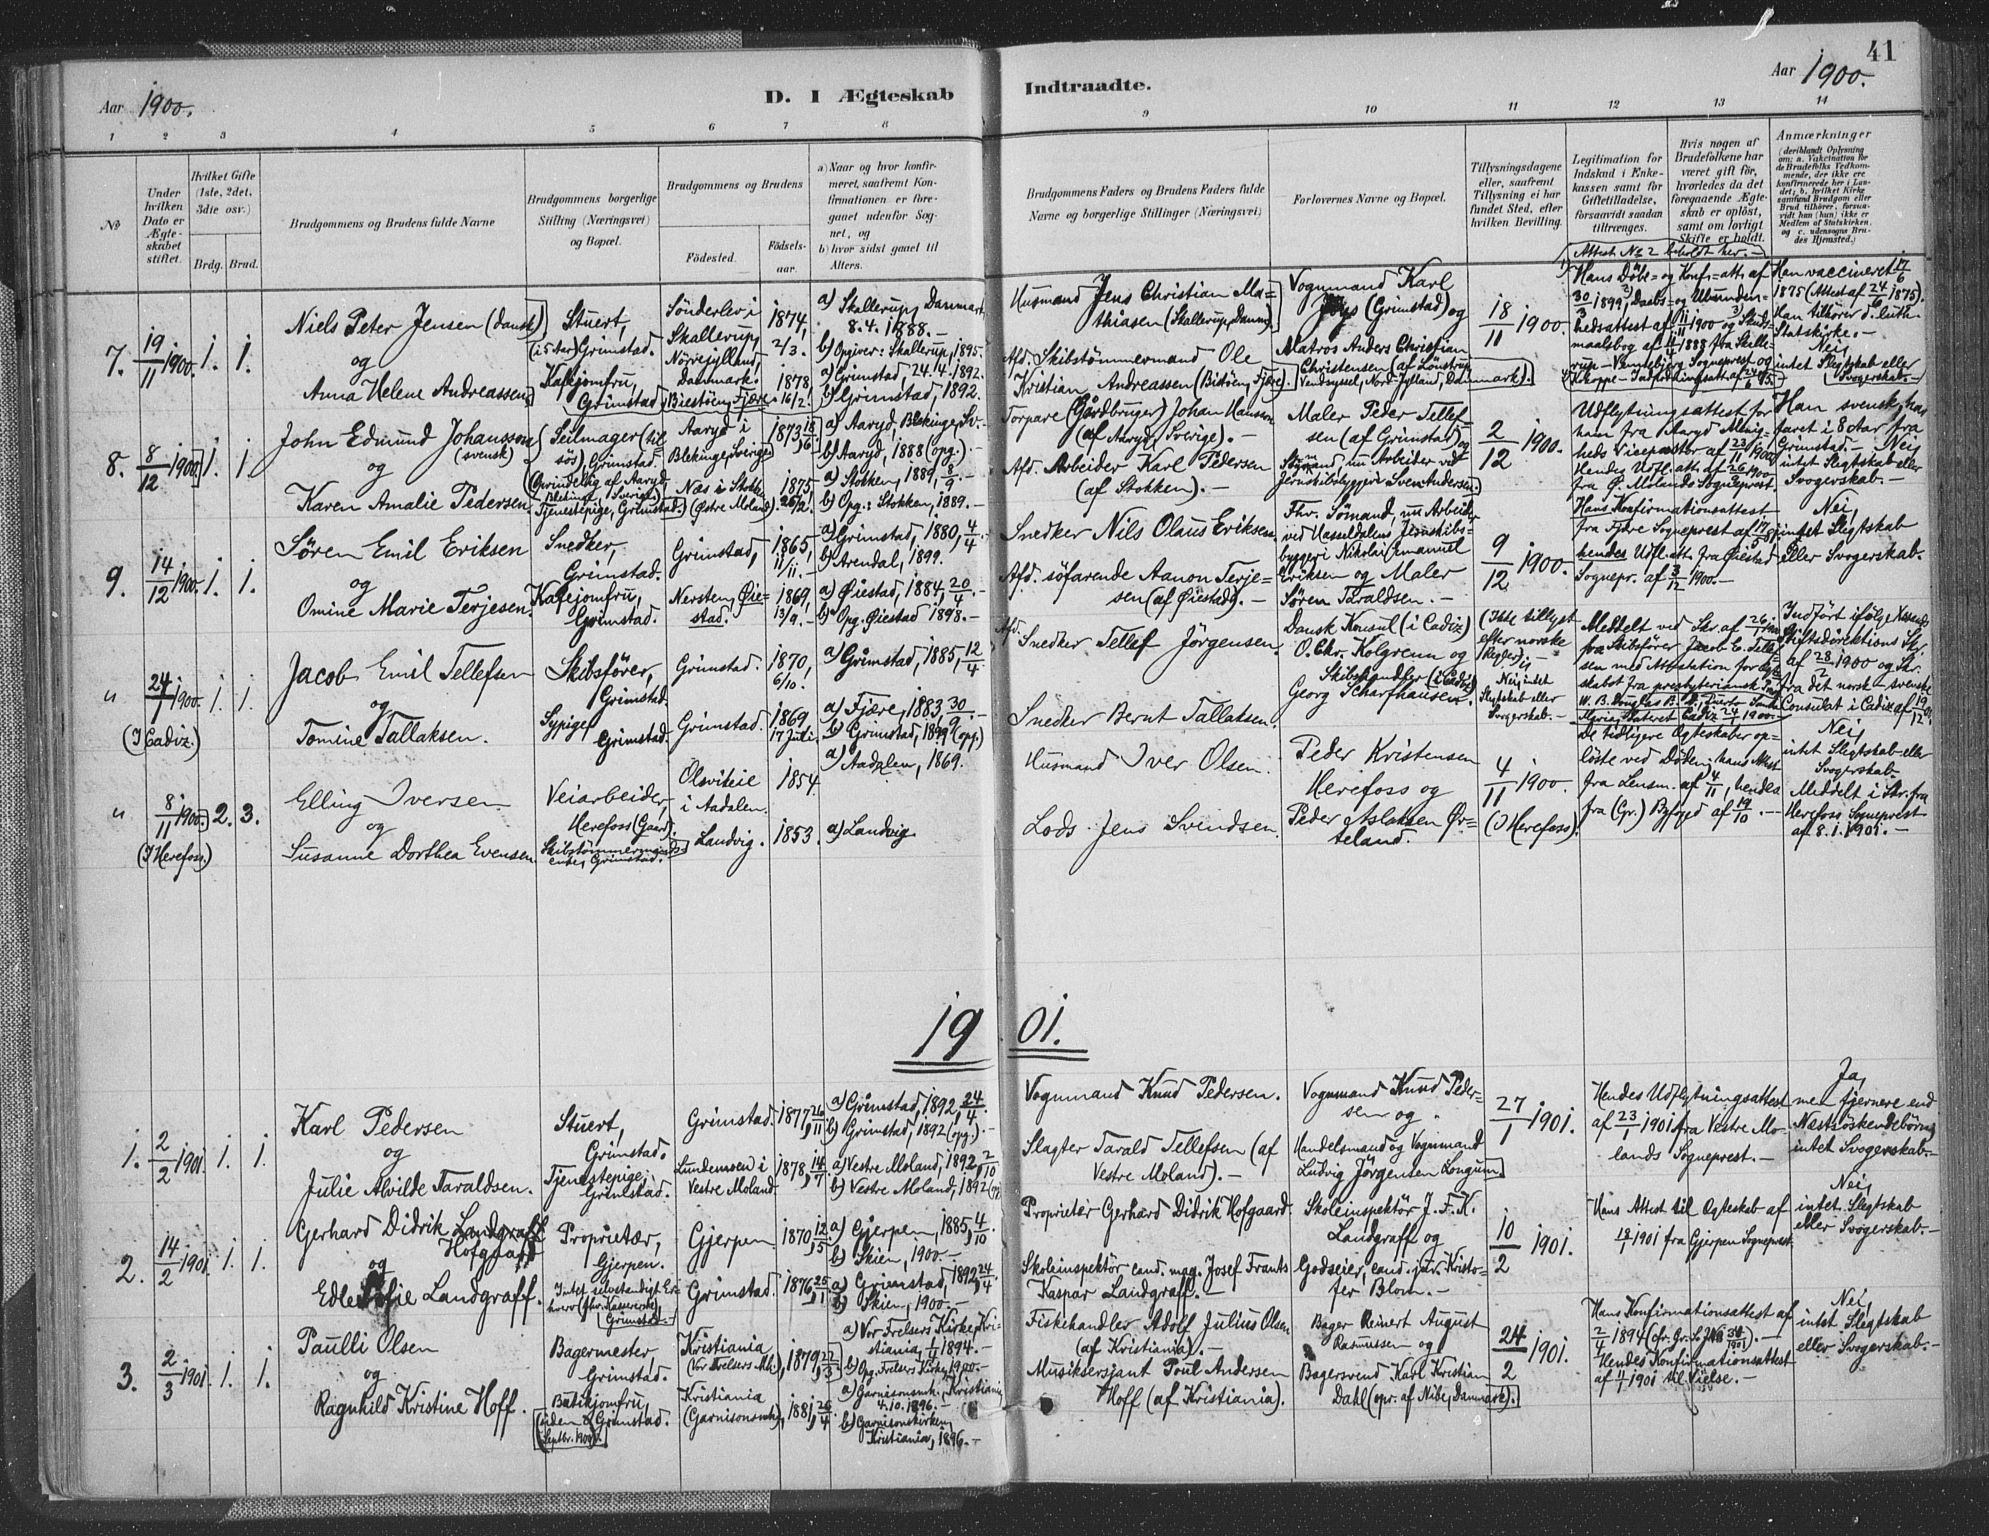 41
Aar 1900.
D. I Ægteskab
Indtraadte.
Aar 1900.
1 2 3 4 5 6 7 8 9 10 11 12 13 14
№
Under hvilken Dato er Ægteskabet stiftet.
Hvilket Gifte (1ste, 2det, 3die osv.)
Brdg. Brud.
Brudgommens og Brudens fulde Navne
Brudgommens borgerlige Stilling (Næringsvei) og Bopæl.
Brudgommens og Brudens
Fødested.
Fødselsaar.
a) Naar og hvor konfirmeret, saafremt Konfirmationen er foregaaet udenfor Sognet, og
b) hvor sidst gaaet til Alters.
Brudgommens Faders og Brudens Faders fulde Navne og borgerlige Stillinger (Næringsvei)
Forlovernes Navne og Bopæl.
Tillysningsdagene eller, saafremt Tillysning ei har fundet Sted, efter hvilken Bevilling.
Legitimation for Indskud i Enkekassen samt for Giftetilladelse, forsaavidt saadan tiltrænges.
Hvis nogen af Brudefolkene har været gift før, hvorledes da det foregaaende Ægteskab er opløst, samt om lovligt Skifte er holdt.
Anmærkninger
(deriblandt Oplysning om: a. Vakcination for de Brudefolks Vedkommende, der ikke ere konfirmerede her i Landet; b. hvilket Kirkesamfund Brudgom eller Brud tilhører, forsaavidt han (hun) ikke er Medlem af Statskirken, og c. udensogns Brudes Hjemsted.)
7. 19/11 1900. 1. 1.
Niels Peter Jensen (dansk)
og
Anna Helene Andreassen
Stuert,
(i 5 Aar) Grimstad.
Kafejomfru,
Grimstad
Sönderlev i
Skallerup,
Nörrejylland,
Danmark.
Biestöen, Fjære
1874,
2/3.
1878,
16/2.
a) Skallerup, Danmark,
8. 4. 1888. —
b) Opgiver: Skallerup, 1895.
a) Grimstad, 24. 4. 1892.
b) Grimstad, 1892.
Husmand Jens Christian Ma=
thiasen (Skallerup, Danm.)
Afd. Skibstömmermand Ole
Kristian Andreassen (Bistöen, Fjære).
Vognmand Karl
(Grimstad) og
Matros Anders Christian
Christensen (af Lönstrup,
Vendsyssel, Nord-Jylland, Danmark).
18/11 1900.
Attest № 2 beholdt her. —
Hans Döbe= og Konf.=att. af
30/3 1899,
hedsattest af 11/11 1900 og
maalsbog af 1888 fra Skalle-
rup — Vennebjerg Sogneprest og
Han vaccineret 17/6
1875 (Attest af 24/6 1875).
Han tilhører d. luth.
Statskirke. —
Nei,
intet Slegtskab eller
Svogerskab. —
8. 8/12 1900 1. 1.
John Edmund Johansson
(svensk)
og
Karen Amalie Pedersen
Seilmager (til
sös), Grimstad.
(Oprindelig af Aaryd,
Blekinge, Sverige)
Tjenestepige, Grimstad.
Aaryd i
Blekinge, Sverige
Næs i Stokken
(Östre Moland).
1873, 18/6
1875,
26/2.
a) Aaryd, Blekinge, Sv.
b) Aaryd, 1888 (opg.). —
a) Stokken, 1889, 8/9. —
b) Opg.: Stokken, 1889. —
Torpare (Gårdbruger) Johan Hansson
(af Aaryd, Sverige). —
Afd. Arbeider Karl Pedersen
(af Stokken). —
Maler Peder Tellef
sen (af Grimstad) og
Styrmand, nu Arbeider ved
Jernskibsbyggeri Sven Andersen.
2/12 1900.
Udflytningsattest for
ham fra Aaryd Menig-
heds Vicepastor af 23/11 1900
Hendes Udfl. att. af 26/
fra Ö. Molands Sogneprest.
Han svensk, har
faret i 8 Aar fra
Grimstad. — Nei,
intet Slegtskab eller
Svogerskab. —
9. 14/12 1900. 1. 1.
Sören Emil Eriksen
og
Omine Marie Terjesen
Snedker,
Grimstad.
Kafejomfru,
Grimstad.
Grimstad,
Nersten, Öie-
stad.
1865,
11/11. —
1869,
13/9. —
a) Grimstad, 1880, 4/4. —
b) Arendal, 1899.
a) Öiestad, 1884, 20/4. —
b) Opg. Öiestad 1898. —
Snedker Nils Olaus Eriksen.
Afd. söfarende Aanon Terje=
sen (af Öiestad). —
Fhv. Sömand, nu Arbeider
ved Hasseldalens Jernskibs-
byggeri Nikolai Emanuel
Eriksen og Maler
Sören Taraldsen. —
9/12 1900.
Hans Konfirmationsattest
fra Fjære Sogneprest af
hendes Udfl. att. fra Öiestad
Sognepr. af 3/12 1900. —
Nei,
intet Slegtskab
eller Svogerskab. —
„ 24/1 1900. 1. 1.
(I Cadiz.)
Jacob Emil Tellefsen
og
Tomine Tallaksen.
Skibsförer,
Grimstad.
Sypige,
Grimstad.
Grimstad.
Grimstad.
1870,
6/10.
1869,
17 Juli.
a) Grimstad, 1885, 12/4
a) Fjære, 1883, 30/9. —
b) Grimstad, 1899 (opg.)
Afd. Snedker Tellef Jörgensen.
Snedker Bernt Tallaksen.
Dansk Konsul (i Cadiz)
O. Chr. Kolgrenn og
Skibshandler (i Cadiz)
Georg Scharfhausen.
(Ikke tillyst
efter norske
Regler) —
Nei, intet
Slegtskab eller
Svogerskab. —
Meddelt ved Skr. af 26/
fra Skibsförer Jacob E. Tellef-
sen med Attestation for Ægte-
skabet fra presbyteriansk Prest
W. B. Douglas B. D., Puerto Santa
Maria, Cadiz 24/1 1900. —
Indfört ifölge
Stiftsdirektions Skr.
af 28/2 1900 og Skr.
fra det norsk-svenske
Consulat i Cadiz af 19/12
„ 8/11 1900. 2. 3.
(I Herefoss.)
Elling Iversen
og
Susanne Dorthea Evensen.
Veiarbeider,
Herefoss (Gaard).
Skibstömmermands-
enke, Grimstad.
Ölsviteie
i Aadalen.
Landvig.
1854.
1853.
a) Aadalen, 1869.
a) Landvig
Husmand Iver Olsen.
Lods Jens Svendsen.
Peder Kristensen
Herefoss og
Peder Aslaksen Ör=
teland.
4/11 1900.
(I Herefoss).
De tidligere Ægteskaber op-
löste ved Döden, hans Attest
fra Lensm. af 4/11, hendes
fra (Gr.) Byfoged af 19/10. —
Nei,
intet Slegtskab eller
Svogerskab. —
Meddelt i Skr. fra
Herefoss Sogneprest
af 8. 1. 1901. —
1901.
1. 2/2 1901. 1. 1.
Karl Pedersen
og
Julie Alvilde Taraldsen.
Stuert,
Grimstad.
Tjenestepige,
Grimstad.
Grimstad.
Lundemoen i
Vestre Moland
1877, 26/11
1878, 14/7
a) Grimstad, 1892, 24/4. —
b) Grimstad, 1892 (opg.) —
a) Vestre Moland, 1892, 2/10
b) Vestre Moland, 1892
Vognmand Knud Pedersen.
Slagter Tarald Tellefsen (af
Vestre Moland). —
Vognmand Knud Peder-
sen og
Handelsmand og Vognmand
Ludvig Jörgensen Longum
27/1 1901.
Hendes Udflytningsattest
af 23/1 1901 fra Vestre Mo-
lands Sogneprest. —
Ja,
men fjernere end
Næstsöskendebörn;
intet Svogerskab. —
2. 14/2 1901. 1. 1.
Gerhard Didrik Landgraff
Hofgaard
og
Edle Sofie Landgraff.
Proprietær,
Gjerpen.
Intet selvstændigt Er-
hverv
Grimstad. —
Gjerpen
Grimstad.
1870 12/5
1876 25/11
a) Gjerpen, 1885 4/10
b) Skien, 1900. —
a) Grimstad, 1892, 24/4.
b) Skien, 1900. —
Proprietær Gerhard Didrik Hofgaard.
Skoleinspektör cand. mag. Josef Frants
Kaspar Landgraff. —
Skoleinspektör J. F. K.
Landgraff og
Godseier, cand. jur. Kristo=
fer Blom. —
10/2 1901.
Hans Attest til Ægteskab af
1901 fra Gjerpen Sogneprest.
Nei,
intet Slegtskab
eller Svogerskab. —
3. 2/3 1901 1. 1.
Paulli Olsen
og
Ragnhild Kristine Hoff.
Bagermester,
Grimstad.
Butikjomfru,
(siden Grimstad.
Septbr. 1900).
Kristiania
(Vor Frelsers Mh.)
Kristiania
(Garnisonsmh.),
1879, 22/3
1881, 26/4
a) Vor Frelsers Kirke, Kri-
stiania, 1894. —
b) Opg. Frelsers Kirke, 1900. —
a) Garnisonsmh., Kristiania,
4. 10. 1896. —
b) Garnisonskirken,
Kristiania, 1896. —
Fiskehandler Adolf Julius Olsen
(af Kristiania). —
Musiksersjant Poul Andersen
Hoff (af Kristiania).
Bager Reinert August
Rasmussen og
Bagersvend Karl Kristian
Dahl (opr. af Nibe, Danmark).
24/2 1901.
Hans Konfirmationsattest af
2/4 1894
Hendes Konfirmationsattest
af 1901 til Vielse. —
Nei,
intet Slegtskab
eller Svogerskab. —